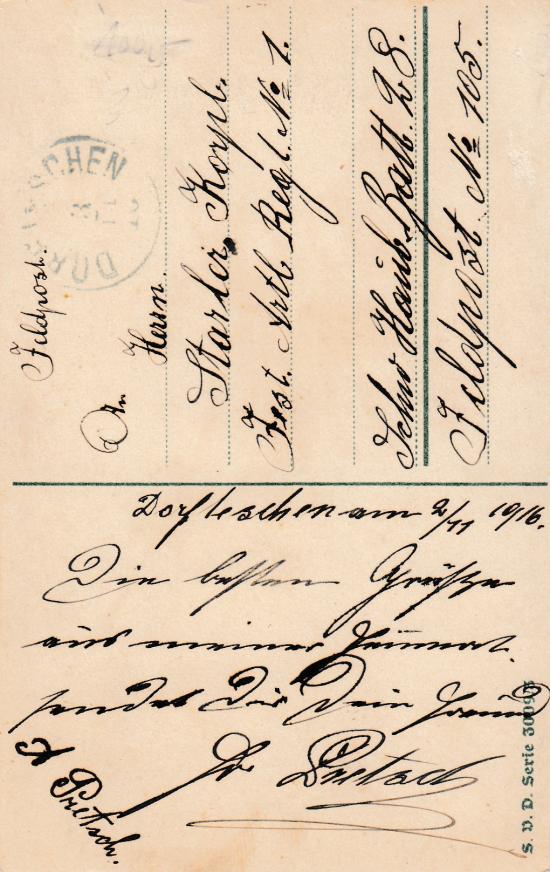 Feldpost.
An
Herrn
Starler Korpl.
Fest. Artl. Regt. № 1.
Schw Haub Batt. 28.
Feldpost № 105.
DORF
SCHEN
Dorfteschen am 2/11 1916.
Die besten Grüße
aus meiner Heimat
sendet Dir Dein Freund
Pretsch
A Pretsch.
S. V. D. Serie